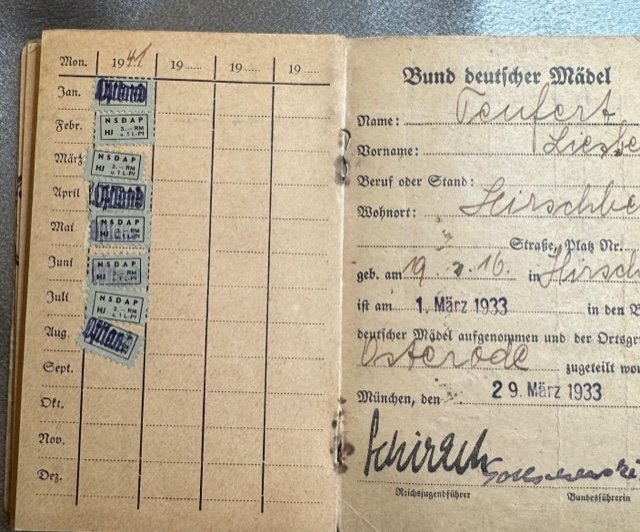 Mon. 1941 19 19 19
Jan. Ostland
Febr. NSDAP HJ 3.–RM u.1 L.-Pf
März NSDAP HJ 3.–RM u.1 L.-Pf
April Ostland
Mai NSDAP HJ 3.–RM u.1 L.-Pf
Juni NSDAP HJ 3.–RM u.1 L.-Pf
Juli NSDAP HJ 3.–RM u.1 L.-Pf
Aug. Ostland
Sept.
Okt.
Nov.
Dez.
Bund deutscher Mädel
Name: Teufert
Vorname:
Beruf oder Stand:
Wohnort: Hirschbe
Straße, Platz Nr.
geb. am 19. 2. 16. in Hirsch
ist am 1. März 1933 in den B
deutscher Mädel aufgenommen und der Ortsgr
Osterode zugeteilt wor
München, den 29. März 1933
Schirach
Reichsjugendführer Bundesführerin